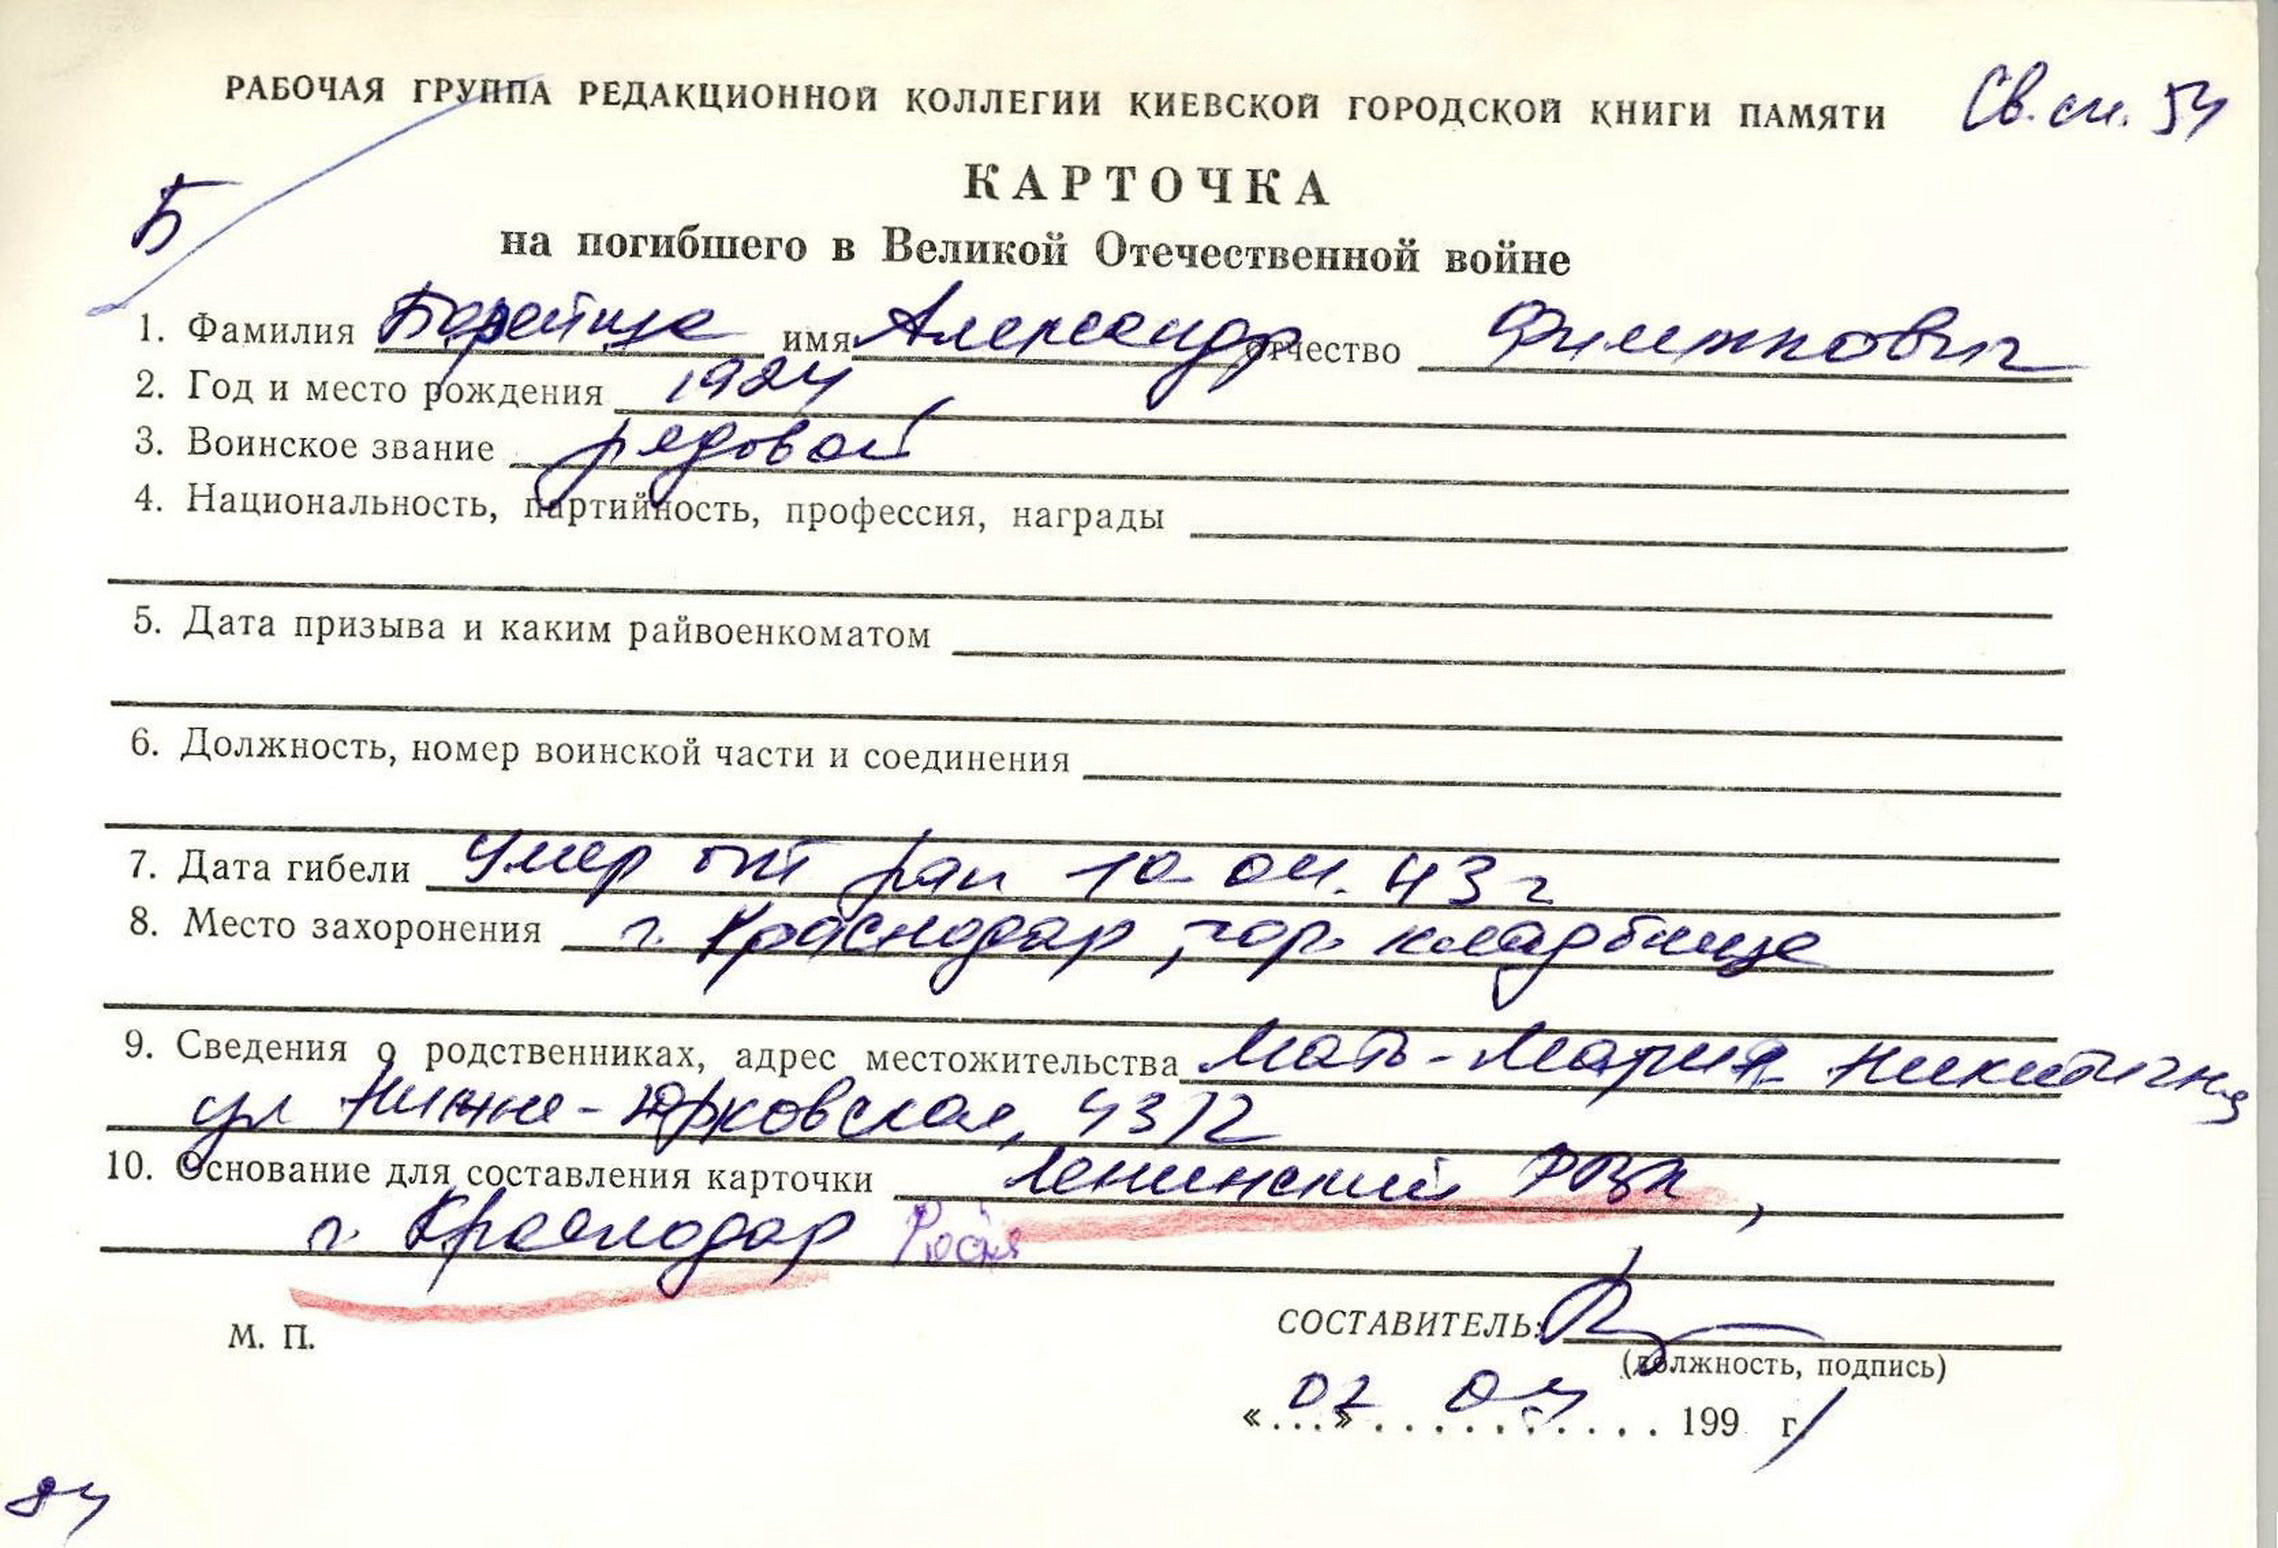 РАБОЧАЯ ГРУППА РЕДАКЦИОННОЙ КОЛЛЕГИИ КИЕВСКОЙ ГОРОДСКОЙ КНИГИ ПАМЯТИ Св. сп. 54
Б
КАРТОЧКА
на погибшего в Великой Отечественной войне
1. Фамилия имя Александр отчество
2. Год и место рождения 1924
3. Воинское звание рядовой
4. Национальность, партийность, профессия, награды
5. Дата призыва и каким райвоенкоматом
6. Должность, номер воинской части и соединения
7. Дата гибели Умер от ран 10.04.43 г
8. Место захоронения г. Краснодар, гор. кладбище
9. Сведения о родственниках, адрес местожительства Мать - Мария Никитична
ул Нижне-Юрковская, 43/2
10. Основание для составления карточки Ленинский РВК,
г. Краснодар
М. П.
СОСТАВИТЕЛЬ:
(должность, подпись)
« 02 » 04 199 г.
84